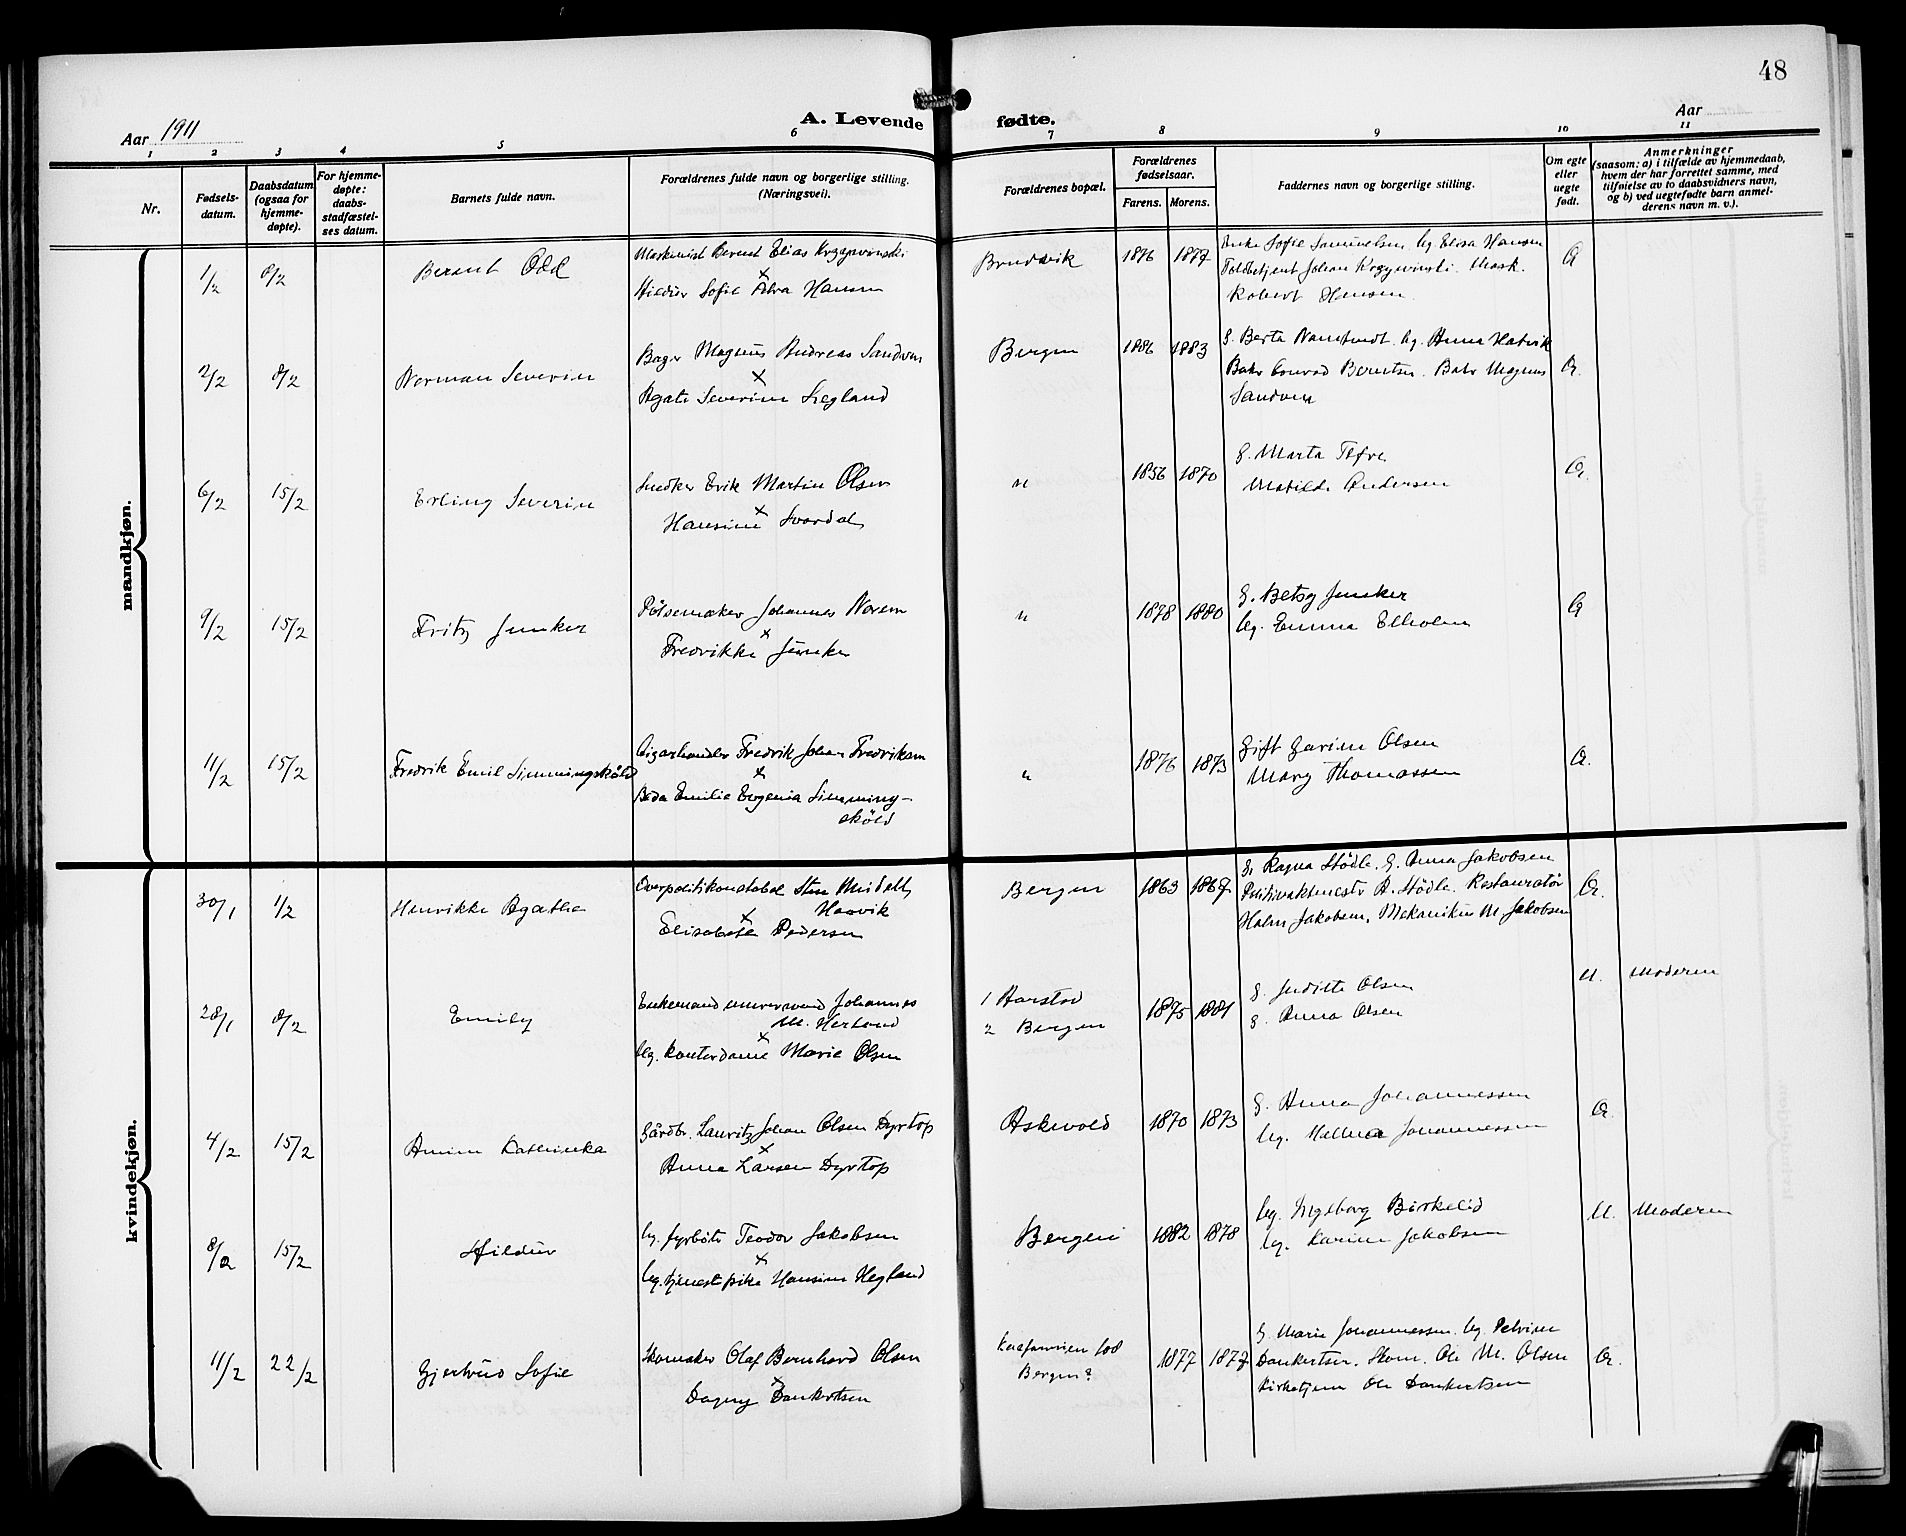 48
Aar 1911
A. Levende fødte.
Aar
1 2 3 4 5 6 7 8 9 10 11
Nr.
Fødsels-
datum.
Daabsdatum
(ogsaa for
hjemme-
døpte).
For hjemme-
døpte:
daabs-
stadfæstel-
ses datum.
Barnets fulde navn.
Forældrenes fulde navn og borgerlige stilling.
(Næringsvei).
Forældrenes bopæl.
Forældrenes
fødselsaar.
Farens. Morens.
Faddernes navn og borgerlige stilling.
Om egte
eller
uegte
født.
Anmerkninger
(saasom: a) i tilfælde av hjemmedaab,
hvem der har forrettet samme, med
tilføielse av to daabsvidners navn,
og b) ved uegtefødte barn anmel-
derens navn m. v.).
mandkjøn.
1/2 8/2 Berent Odd
Maskinist Berent Elias
x
Hildur Sofie Hansen
Bruvik 1876 1877
Enke Sofie Samuelsen. Ug. Elisa Hansen
Toldbetjent Johan Mask.
Robert Hansen.
2/2 8/2 Norman Severin
Bager Magnus Andreas Sandven
x
Agate Severine Legland
Bergen 1886 1883
G. Berta Ug. Anna Hatvik
Bake Conrad Berntsen. Bake Magnus
Sandven
6/2 15/2 Erling Severin
Snedker Erik Martin Olsen
x
Hansine Svardal
" 1856 1870
G. Marta Tefre
Matilde Andersen
9/2 15/2 Fritz Junker
Pölsemaker Johannes Norem
x
Fredrikke Junker
" 1878 1880
G. Betsy Junker
Ug. Emma Elholm
11/2 15/2 Fredrik Emil Simmingsköld
Cigarhandler Fredrik Johan Fredriksen
x
Beda Emilie Eugenia Simming-
sköld
" 1876 1873
Gift Garine Olsen
Mary Thomassen
kvindekjøn.
30/1 1/2 Henrikke Agathe
Overpolitikonstabel Sten Misdell
Haavik
x
Elisabete Pedersen
Bergen 1863 1867
G. Ragna Stödle. G. Anna Jakobsen
A. Stödle. Restauratör
Holm Jakobsen, Mekanikus M. Jakobsen
28/1 8/2 Emily
Enkemand murersvend Johannes
M. Herland
x
Ug. kontordame Marie Olsen
1 Aarstad
2 Bergen
1875 1881
G. Juditte Olsen
G. Anna Olsen
U. Moderen
4/2 15/2 Amine Kathinka
Gårdbr. Lauritz Johan Olsen Dyrtop
x
Anna Larsen Dyrtop
Askevold 1870 1873
G. Anna Johannessen
Ug. Johannessen
8/2 15/2 Hildur
Ug. fyrböter Teodor Jakobsen
x
Ug. tjenestepike Hansine Hegland
Bergen 1882 1878
Ug. Ingeborg Birkelid
Ug. Karine Jakobsen
U. Moderen
11/2 22/2 Gjertrud Sofie
Skomaker Olaf Bernhard Olsen
x
Dagny Dankertsen
Bergen?
1877 1877
G. Marie Johannessen. Ug. Petrine
Dankertsen. Skom. Ole M. Olsen
Kirketjener Ole Dankertsen